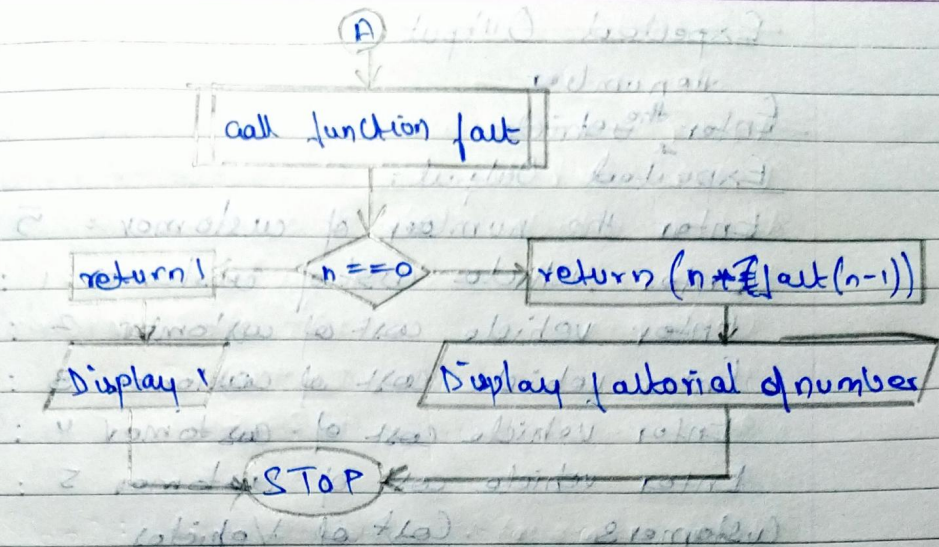 A
call function fact
n==0
return 1
return (n*fact(n-1))
Display 1
Display factorial of number
STOP